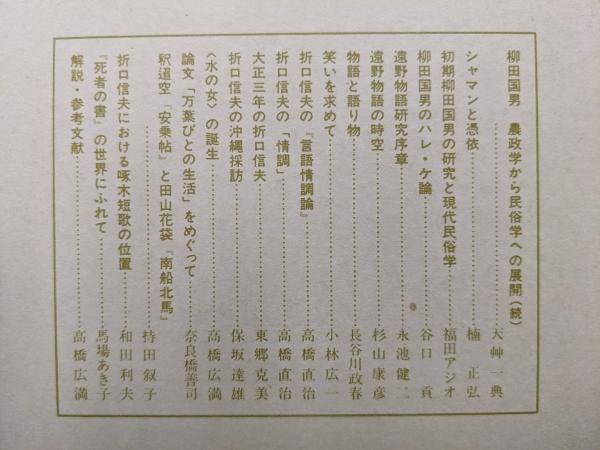 柳田国男　農政学から民俗学への展開(続)……大艸一典
シャマンと憑依……楠正弘
初期柳田国男の研究と現代民俗学……福田アジオ
柳田国男のハレ・ケ論……谷口貢
遠野物語研究序章……永池健二
遠野物語の時空……杉山康彦
物語と語り物……長谷川政春
笑いを求めて……小林広一
折口信夫の『言語情調論』……高橋直治
折口信夫の「情調」……高橋直治
大正三年の折口信夫……東郷克美
折口信夫の沖縄採訪……保坂達雄
〈水の女〉の誕生……高橋広満
論文「万葉びとの生活」をめぐって……奈良橋善司
釈迢空「安乗帖」と田山花袋『南船北馬』
……持田叙子
折口信夫における啄木短歌の位置……和田利夫
『死者の書』の世界にふれて……馬場あき子
解説・参考文献……高橋広満